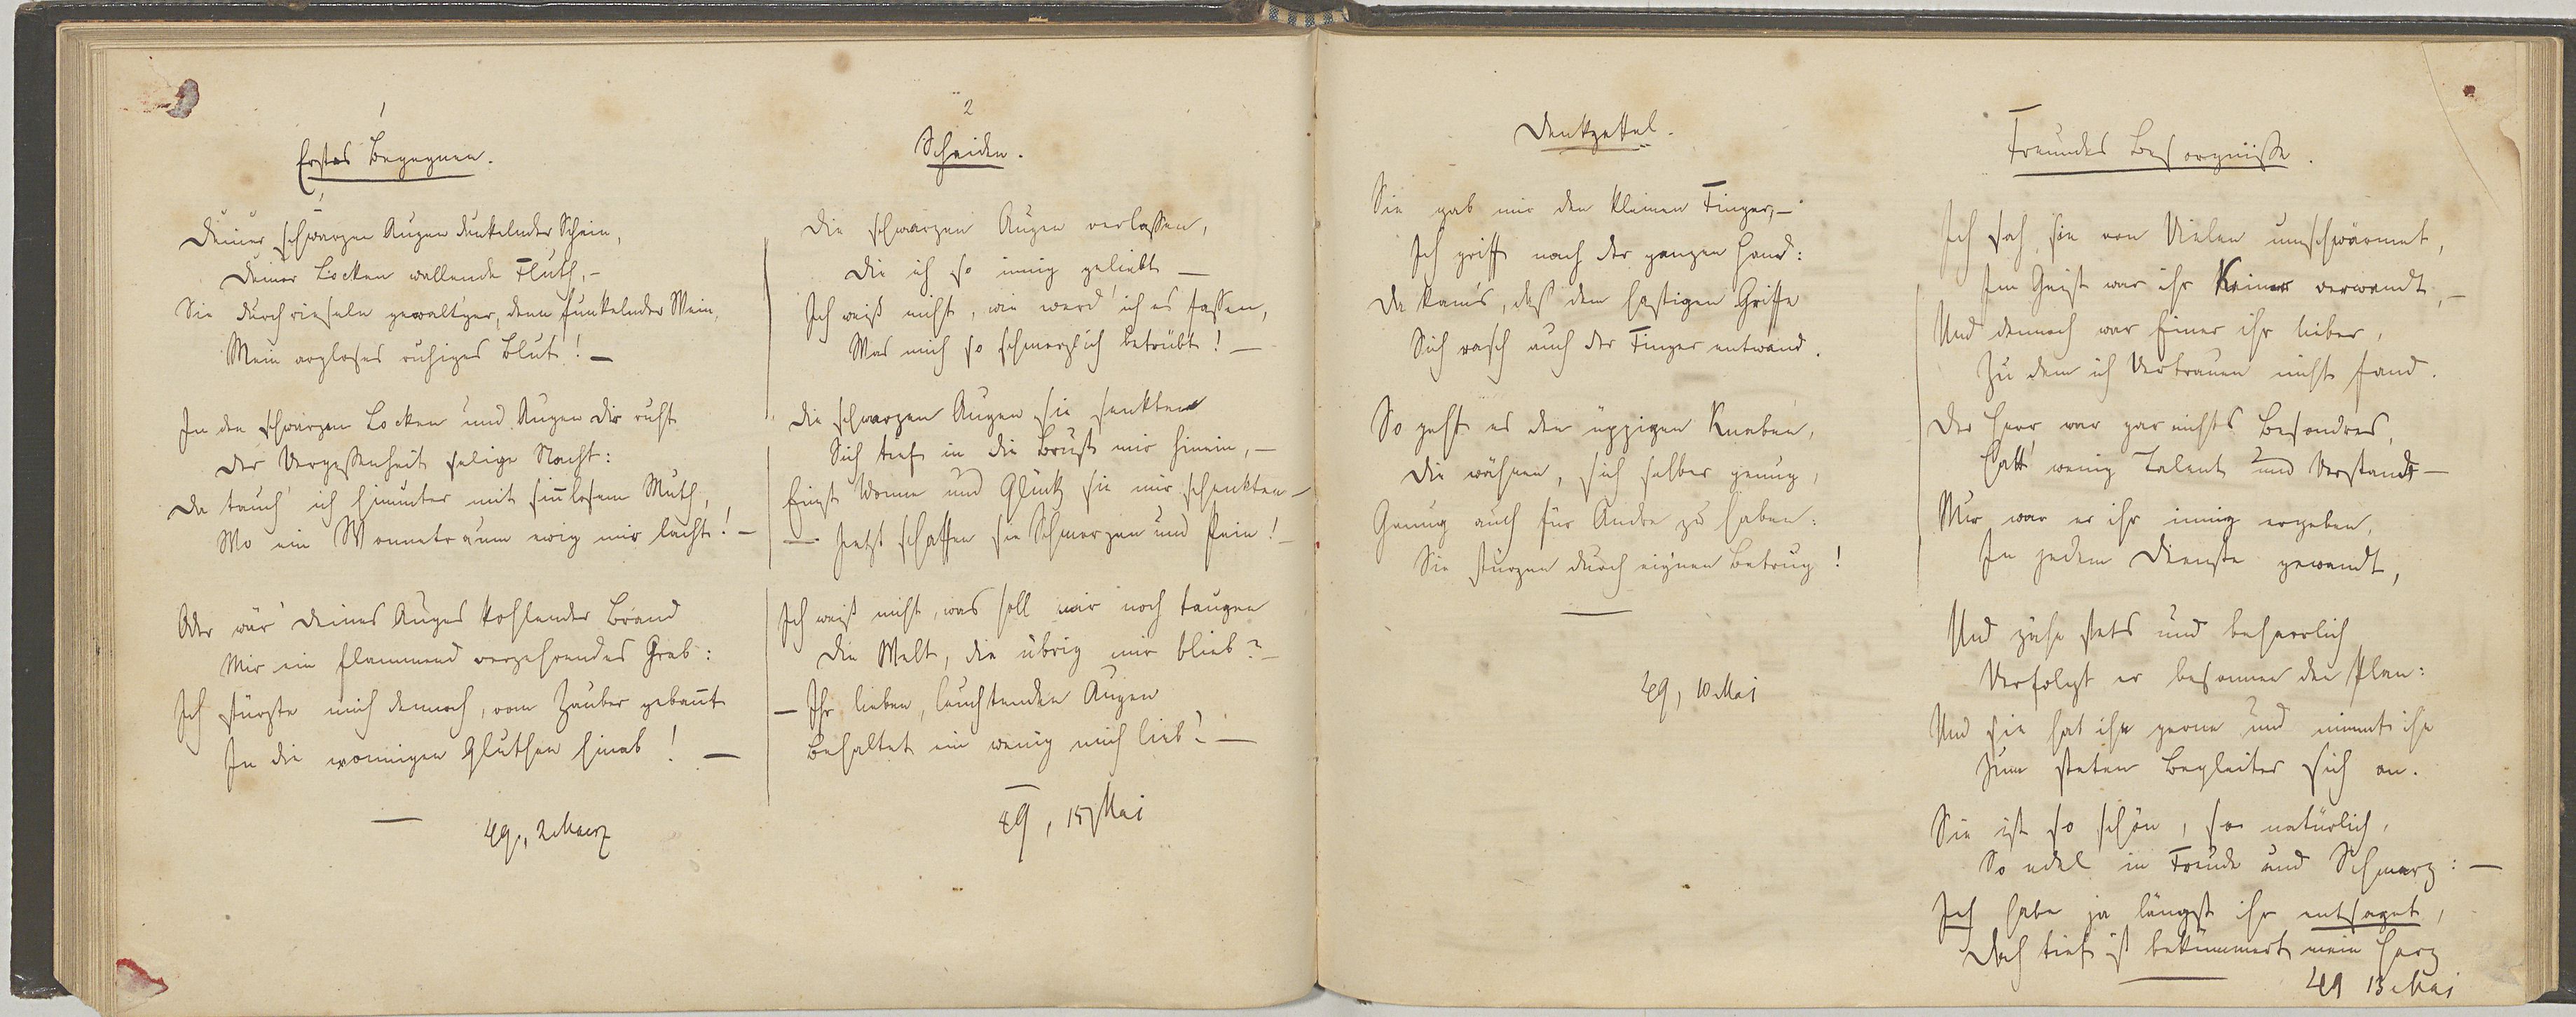 1
Erstes Begegnen.
Deiner schwarzen Augen dunkelnder Schein,
Deiner Locken wallende Fluth, –
Sie durchrieseln gewalt'ger, denn funkelnder Wein,
Mein argloses ruhiges Blut! –
In den schwarzen Locken und Augen dir ruht
Der Vergessenheit selige Nacht:
Da tauch' ich hinunter mit sin̄losem Muth,
Wo ein Wonnetraum ewig mir lacht! –
Oder wär' deines Auges kohlender Brand
Mir ein flammend verzehrendes Grab:
Ich stürzte mich dennoch, vom Zauber geban̄t
In die wonnigen Gluthen hinab! –
49, 2 Maerz
2
Scheiden.
Die schwarzen Augen verlassen,
Die ich so innig geliebt –
Ich weiß nicht, wie werd' ich es fassen,
Was mich so schmerzlich betrübt! –
Die schwarzen Augen sie senkten
Sich tief in die Brust mir hinein, –
Einst Wonne und Glück sie mir schenkten –
– Jetzt schaffen sie Schmerzen und Pein! –
Ich weiß nicht, was soll mir noch taugen
Die Welt, die übrig mir blieb? –
– Ihr lieben, leuchtenden Augen
Behaltet ein wenig mich lieb! –
49, 15 Mai
Denkzettel.
Sie gab mir den kleinen Finger, –
Ich griff nach der ganzen Hand:
Da kam's, daß dem hastigen Griffe
Sich rasch auch der Finger entwand.
So geht es den üppigen Knaben,
Die wähnen, sich selber genug,
Genug auch für Andre zu haben:
Sie stürzen durch eignen Betrug!
49, 10 Mai
Freundes Besorgnisse.
Ich sah sie von Vielen umschwärmet,
Im Geist war ihr Keiner verwandt, –
Und dennoch war Einer ihr lieber,
Zu dem ich Vertrauen nicht fand.
Der Herr war gar nichts Besondres,
Hatt' wenig Talent und Verstand –
Mir war er ihr innig ergeben,
In jedem Dienste gewandt,
Und zähe stets und beharrlich
Verfolgt er besonnen den Plan:
Und sie hat ihn gerne und nimmt ihn
Zum steten Begleiter sich an.
Sie ist so schön, so natürlich,
So edel in Freude und Schmerz: –
Ich habe ja längst ihr entsaget,
Doch tief ist bekümmert mein Herz
49 13 Mai